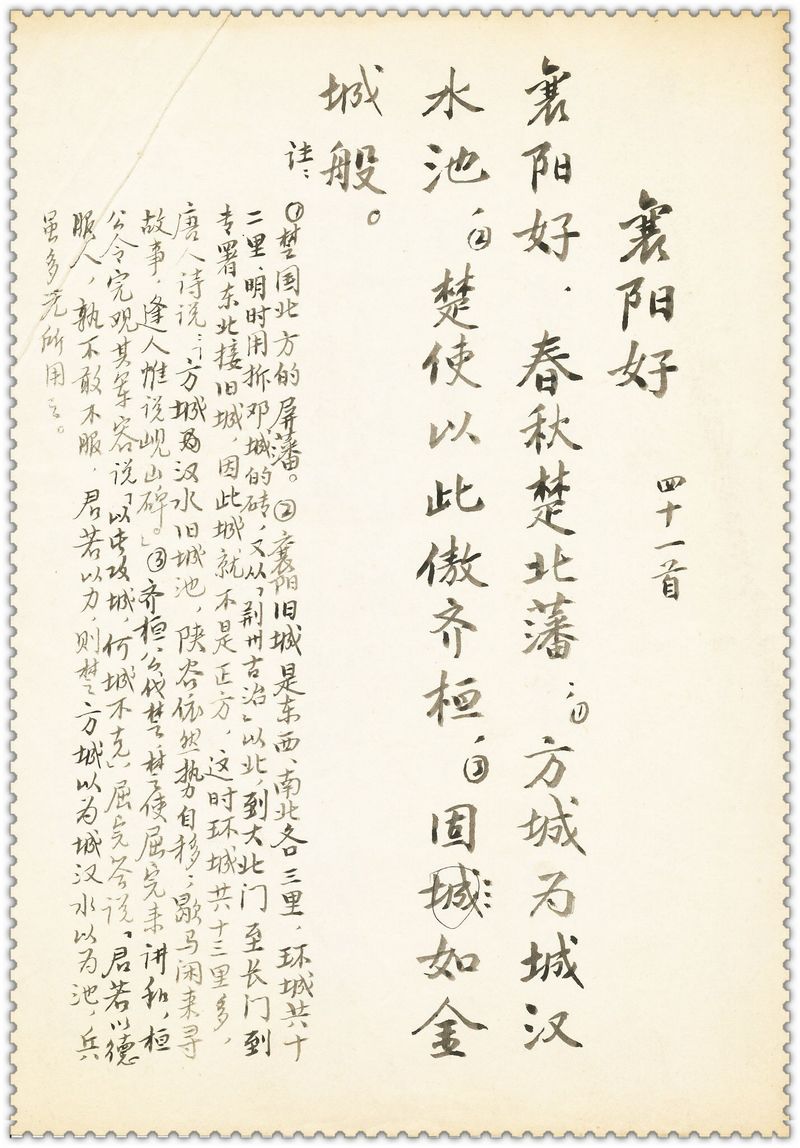 襄阳好 四十一首
襄阳好，春秋楚北藩；①方城为城汉
水池，②楚使以此傲齐桓，③固城如金
城般。
注：①楚国北方的屏藩。②襄阳旧城是东西、南北各三里，环城共十
二里，明时用拆邓城的砖，又从「荆州古治」以北，到大北门至长门到
专署东北接旧城，因此城就不是正方，这时环城共十三里多，
唐人诗说：「方城为汉水旧城池，陕谷依然势自移；歇马闲来寻
故事，逢人惟说岘山碑。」③齐桓公伐楚，楚使屈完来讲和，桓
公令完观其军容说「以此攻城，何城不克」屈完答说「君若以德
服人，孰不敢不服，君若以力，则楚方城以为城汉水以为池，兵
虽多无所用云。